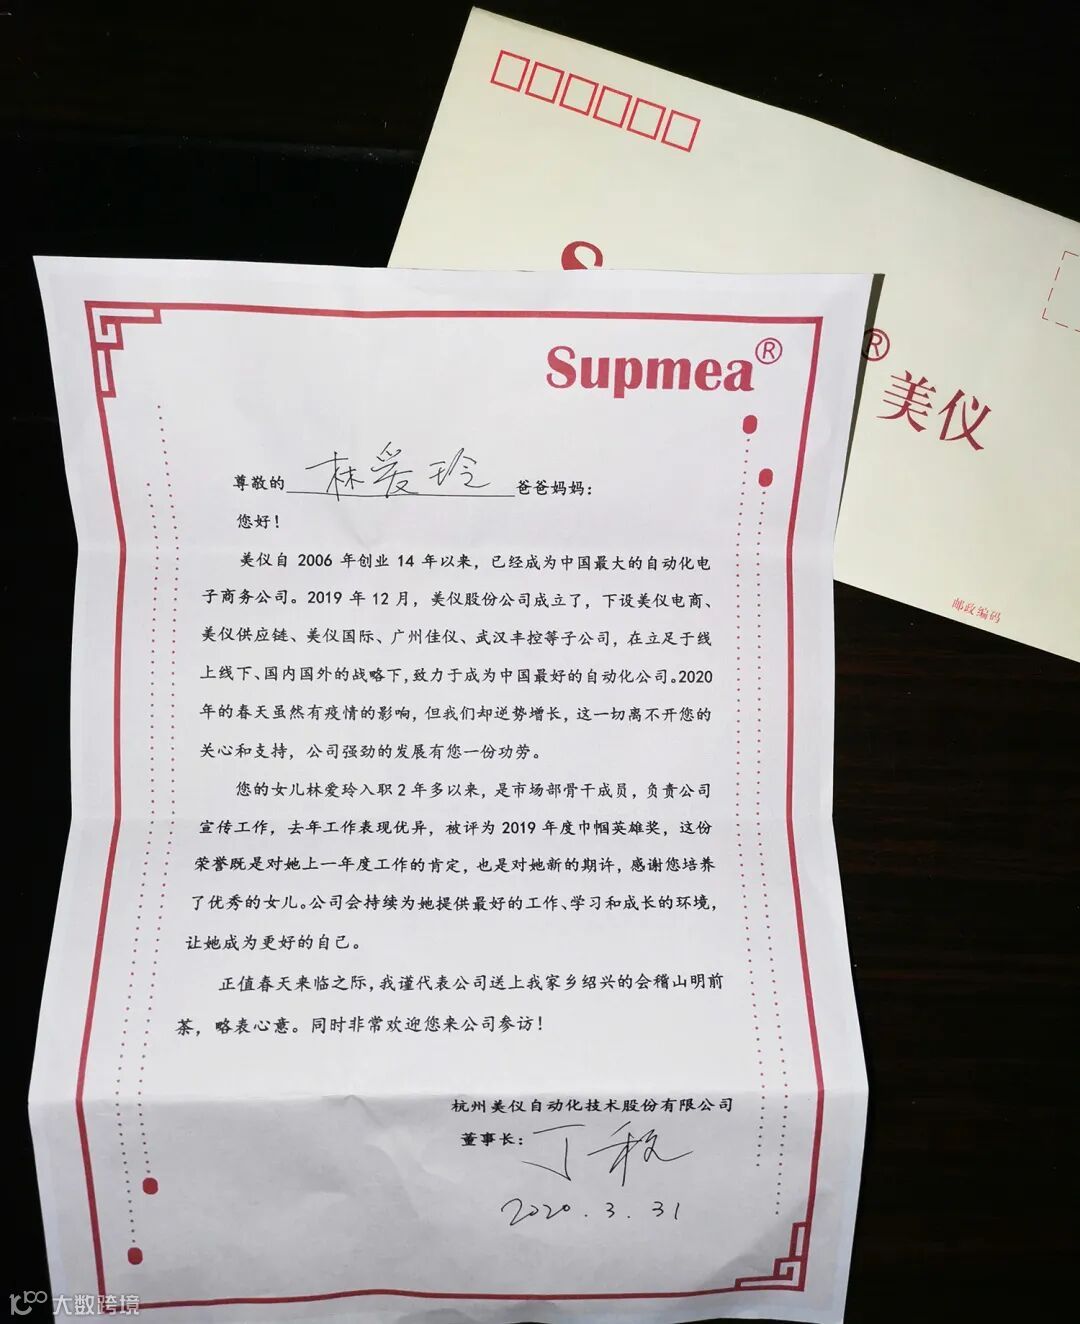 Supmea®
® 美仪
尊敬的 林爱玲 爸爸妈妈：
您好！
美仪自 2006 年创业 14 年以来，已经成为中国最大的自动化电
子商务公司。2019 年 12 月，美仪股份公司成立了，下设美仪电商、
美仪供应链、美仪国际、广州佳仪、武汉丰控等子公司，在立足于线
上线下、国内国外的战略下，致力于成为中国最好的自动化公司。2020
年的春天虽然有疫情的影响，但我们却逆势增长，这一切离不开您的
关心和支持，公司强劲的发展有您一份功劳。
您的女儿林爱玲入职 2 年多以来，是市场部骨干成员，负责公司
宣传工作，去年工作表现优异，被评为 2019 年度巾帼英雄奖，这份
荣誉既是对她上一年度工作的肯定，也是对她新的期许，感谢您培养
了优秀的女儿。公司会持续为她提供最好的工作、学习和成长的环境，
让她成为更好的自己。
正值春天来临之际，我谨代表公司送上我家乡绍兴的会稽山明前
茶，略表心意。同时非常欢迎您来公司参访！
杭州美仪自动化技术股份有限公司
董事长：丁
2020.3.31
邮政编码
大数跨境